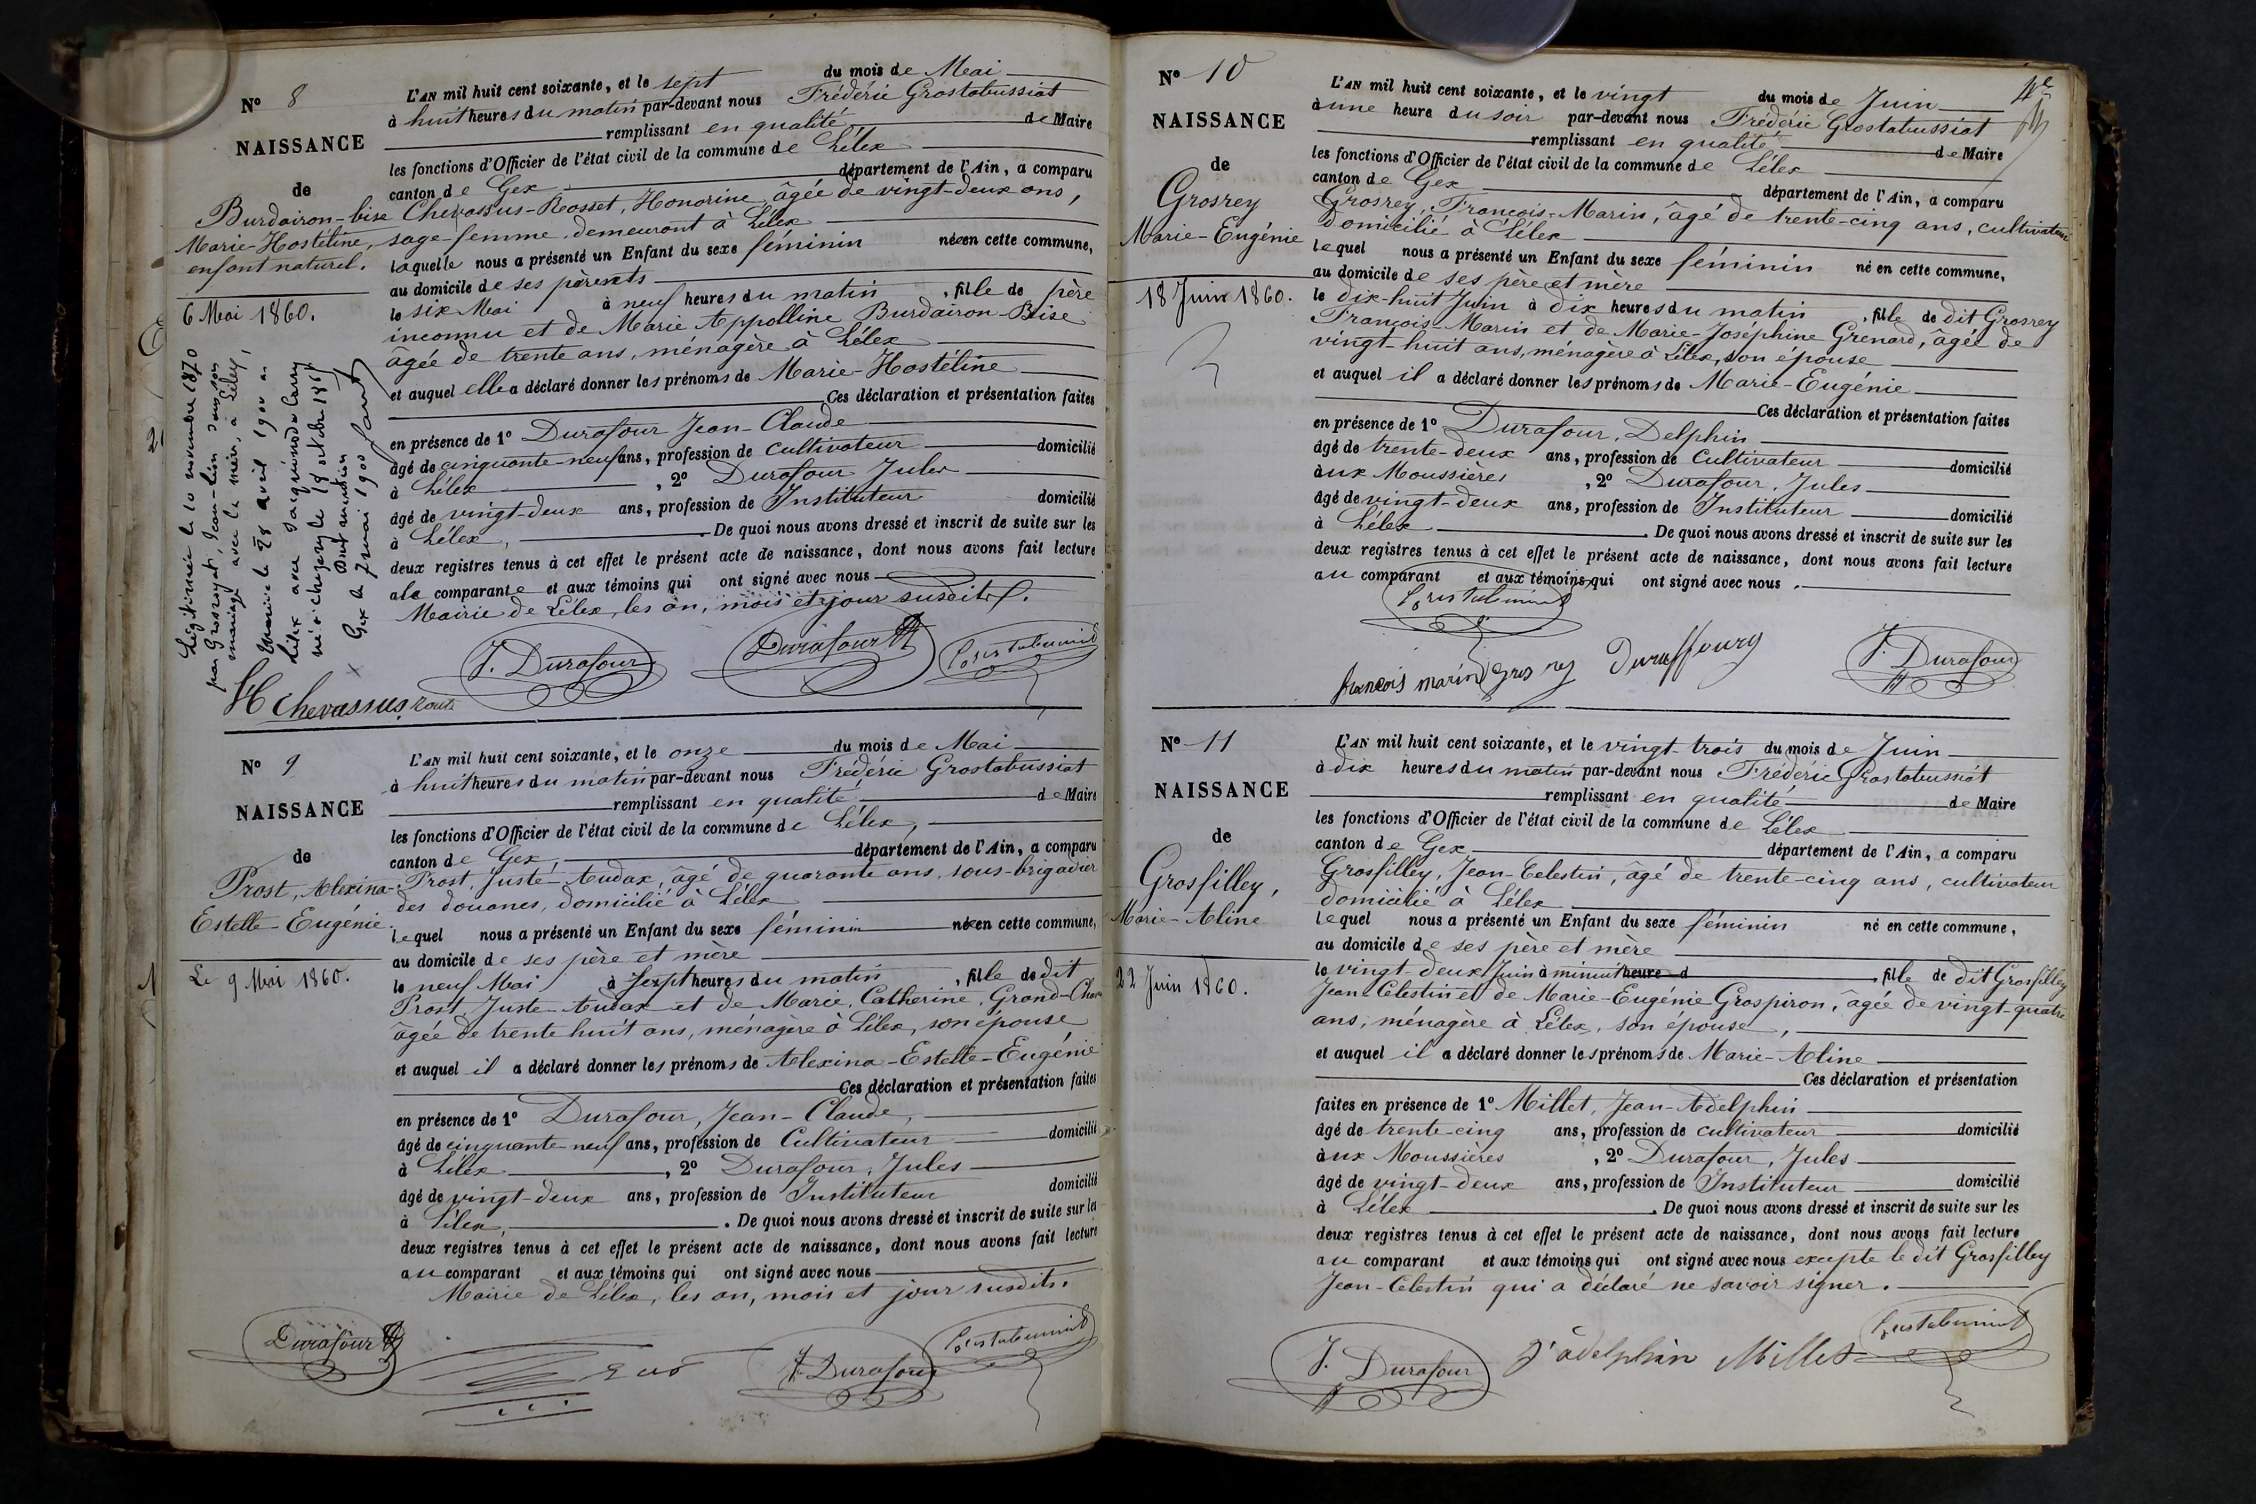 N° 8
NAISSANCE
de
Burdairon-bise
Marie-Hosteline,
enfant naturel.
6 Mai 1860.
Légitimée le 10 novembre 1870
par Grosrey, Jean-Léon dans son
mariage avec la mère, à Lélex,
Mariée le 28 avril 1900 à
Lélex avec
né à Chézery le 18 octobre 186
Dont mention
Gex le 7 mai 1900
L'AN mil huit cent soixante, et le sept du mois de Mai
à huit heures du matin par-devant nous Frédéric Grostabussiat
remplissant en qualité de Maire
les fonctions d'Officier de l'état civil de la commune de Lélex
canton de Gex département de l'Ain, a comparu
Chevassus-Rosset, Honorine, âgée de vingt-deux ans,
sage-femme, demeurant à Lélex
laquelle nous a présenté un Enfant du sexe féminin née en cette commune,
au domicile de ses parents
le six Mai à neuf heures du matin, fille de père
inconnu et de Marie Appolline Burdairon-Bise
âgée de trente ans, ménagère à Lélex
et auquel elle a déclaré donner les prénoms de Marie-Hostéline
Ces déclaration et présentation faites
en présence de 1° Durafour Jean-Claude
âgé de cinquante-neuf ans, profession de cultivateur domicilié
à Lélex, 2° Durafour Jules
âgé de vingt-deux ans, profession de Instituteur domicilié
à Lélex, De quoi nous avons dressé et inscrit de suite sur les
deux registres tenus à cet effet le présent acte de naissance, dont nous avons fait lecture
a la comparante et aux témoins qui ont signé avec nous
Mairie de Lélex, les an, mois et jour susdits.
J. Durafour Durafour Grostabussiat
H Chevassus
N° 9
NAISSANCE
de
Prost, Alexina-
Estelle-Eugénie.
Le 9 Mai 1860.
L'AN mil huit cent soixante, et le onze du mois de Mai
à huit heures du matin par-devant nous Frédéric Grostabussiat
remplissant en qualité de Maire
les fonctions d'Officier de l'état civil de la commune de Lélex,
canton de Gex, département de l'Ain, a comparu
Prost, Juste-Audax, âgé de quarante ans, sous-brigadier
des douanes, domicilié à Lélex
lequel nous a présenté un Enfant du sexe féminin née en cette commune,
au domicile de ses père et mère
le neuf Mai à sept heures du matin, fille de dit
Prost, Juste-Audax et de Marie, Catherine, Grand-
âgée de trente huit ans, ménagère à Lélex, son épouse
et auquel il a déclaré donner les prénoms de Alexina-Estelle-Eugénie
Ces déclaration et présentation faites
en présence de 1° Durafour, Jean-Claude,
âgé de cinquante-neuf ans, profession de Cultivateur domicilié
à Lélex, 2° Durafour, Jules
âgé de vingt-deux ans, profession de Instituteur domicilié
à Lélex, . De quoi nous avons dressé et inscrit de suite sur les
deux registres tenus à cet effet le présent acte de naissance, dont nous avons fait lecture
au comparant et aux témoins qui ont signé avec nous
Mairie de Lélex, les an, mois et jour susdits.
Durafour J. Durafour Grostabussiat
N° 10
NAISSANCE
de
Grosrey
Marie-Eugénie
18 Juin 1860.
L'AN mil huit cent soixante, et le vingt du mois de Juin
à une heure du soir par-devant nous Frédéric Grostabussiat
remplissant en qualité de Maire
les fonctions d'Officier de l'état civil de la commune de Lélex
canton de Gex département de l'Ain, a comparu
Grosrey, François-Marin, âgé de trente-cinq ans, cultivateur
domicilié à Lélex
lequel nous a présenté un Enfant du sexe féminin né en cette commune,
au domicile de ses père et mère
le dix-huit Juin à dix heures du matin, fille de dit Grosrey
François-Marin et de Marie-Joséphine Grenard, âgée de
vingt-huit ans, ménagère à Lélex, son épouse
et auquel il a déclaré donner les prénoms de Marie-Eugénie
Ces déclaration et présentation faites
en présence de 1° Durafour, Delphin
âgé de trente-deux ans, profession de Cultivateur domicilié
aux Moussières, 2° Durafour, Jules
âgé de vingt-deux ans, profession de Instituteur domicilié
à Lélex . De quoi nous avons dressé et inscrit de suite sur les
deux registres tenus à cet effet le présent acte de naissance, dont nous avons fait lecture
au comparant et aux témoins qui ont signé avec nous.
Grostabussiat
françois marin Gros rey Duraffourg J. Durafour
N° 11
NAISSANCE
de
Grosfilley,
Marie-Aline
22 Juin 1860.
L'AN mil huit cent soixante, et le vingt-trois du mois de Juin
à dix heures du matin par-devant nous Frédéric Grostabussiat
remplissant en qualité de Maire
les fonctions d'Officier de l'état civil de la commune de Lélex
canton de Gex département de l'Ain, a comparu
Grosfilley, Jean-Celestin, âgé de trente-cinq ans, cultivateur
domicilié à Lélex
lequel nous a présenté un Enfant du sexe féminin né en cette commune,
au domicile de ses père et mère
le vingt-deux Juin à minuit heure d, fille de dit Grosfilley
Jean-Celestin et de Marie-Eugénie Grospiron, âgée de vingt-quatre
ans, ménagère à Lélex, son épouse,
et auquel il a déclaré donner les prénoms de Marie-Aline
Ces déclaration et présentation
faites en présence de 1° Millet, Jean-Adelphin
âgé de trente-cinq ans, profession de cultivateur domicilié
aux Moussières, 2° Durafour, Jules
âgé de vingt-deux ans, profession de Instituteur domicilié
à Lélex . De quoi nous avons dressé et inscrit de suite sur les
deux registres tenus à cet effet le présent acte de naissance, dont nous avons fait lecture
au comparant et aux témoins qui ont signé avec nous excepte le dit Grosfilley
Jean-Celestin qui a déclaré ne savoir signer.
J. Durafour J adelphin Millet Grostabussiat